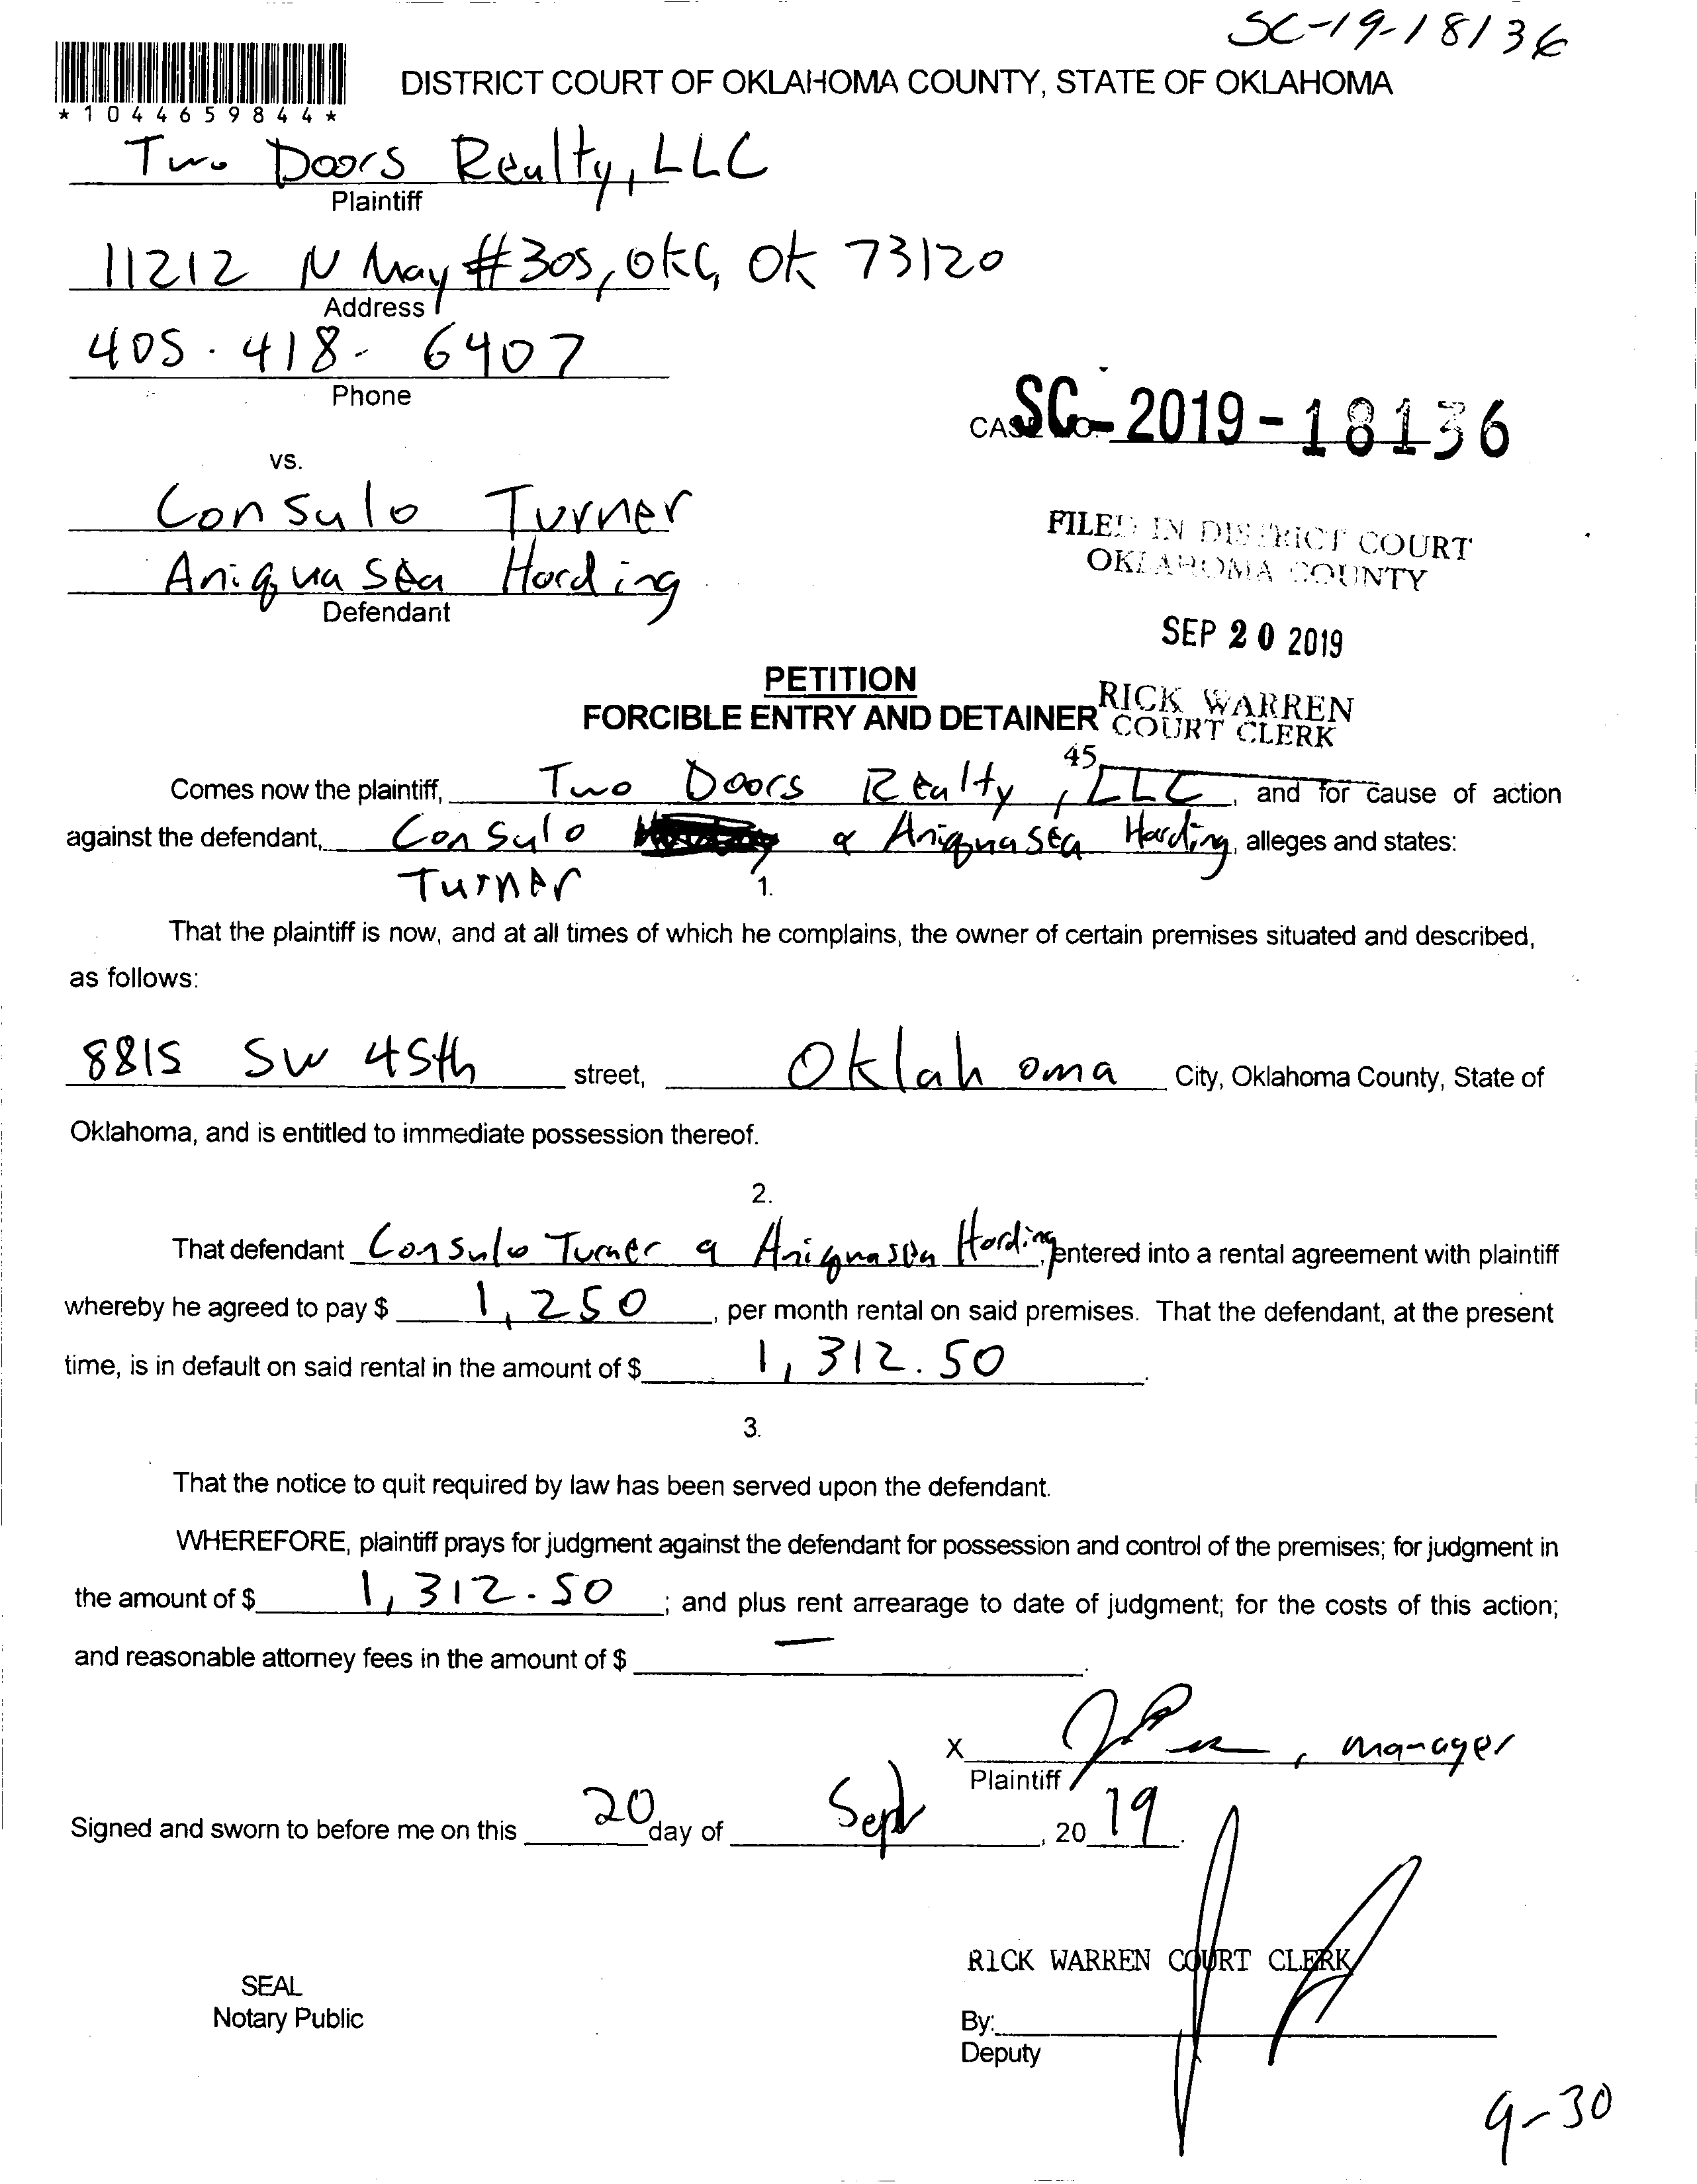 SC-19-18136
*1044659844*
DISTRICT COURT OF OKLAHOMA COUNTY, STATE OF OKLAHOMA
Two Doors Realty, LLC
Plaintiff
11212 N May #305, OKC, OK 73120
Address
405-418-6407
Phone
CASE NO. SC-2019-18136
vs.
Consulo Turner
Aniquasea Harding
Defendant
FILED IN DISTRICT COURT
OKLAHOMA COUNTY
SEP 20 2019
RICK WARREN
COURT CLERK
45
PETITION
FORCIBLE ENTRY AND DETAINER
Comes now the plaintiff, Two Doors Realty, LLC, and for cause of action
against the defendant, Consulo & Aniquasea Harding, alleges and states:
Turner
1.
That the plaintiff is now, and at all times of which he complains, the owner of certain premises situated and described,
as follows:
8815 SW 45th street, Oklahoma City, Oklahoma County, State of
Oklahoma, and is entitled to immediate possession thereof.
2.
That defendant Consulo Turner & Aniquasea Harding, entered into a rental agreement with plaintiff
whereby he agreed to pay $ 1,250, per month rental on said premises. That the defendant, at the present
time, is in default on said rental in the amount of $ 1,312.50.
3.
That the notice to quit required by law has been served upon the defendant.
WHEREFORE, plaintiff prays for judgment against the defendant for possession and control of the premises; for judgment in
the amount of $ 1,312.50; and plus rent arrearage to date of judgment; for the costs of this action;
and reasonable attorney fees in the amount of $ —.
X , manager
Plaintiff
Signed and sworn to before me on this 20 day of Sept, 2019.
RICK WARREN COURT CLERK
SEAL
Notary Public
By:
Deputy
9-30